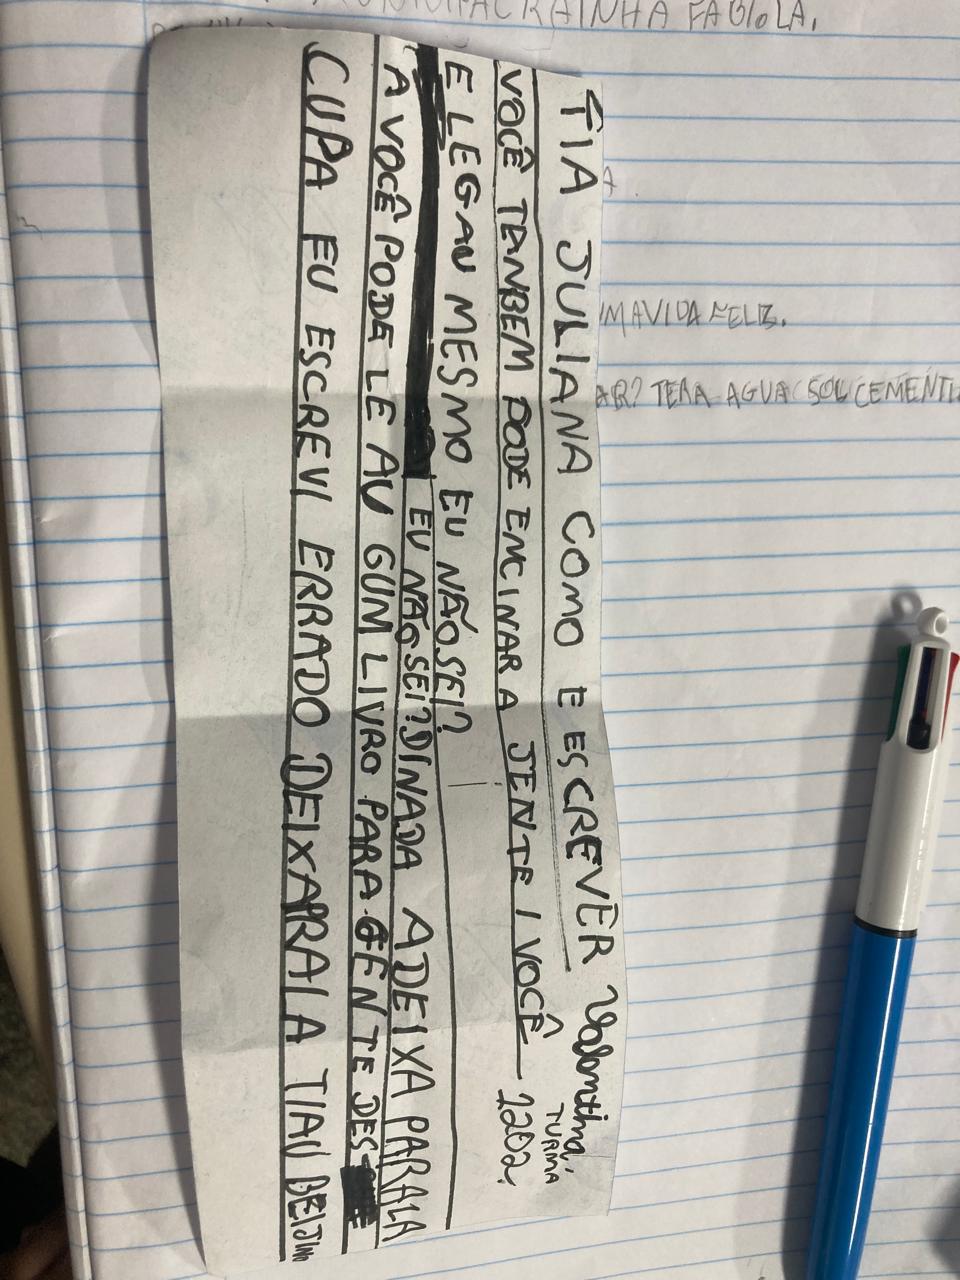 RAINHA FABIOLA.
TIA JULIANA COMO E ESCREVER Valentina,
TURMA
VOCÊ TANBEM PODE ENCINAR A JENTE I VOCÊ 1202.
E LEGAU MESMO EU NÃO SEI?
EU NÃO SEI? DINADA A DEIXA PARALA
A VOCÊ PODE LE AU GUM LIVRO PARA GENTE DES
CUPA EU ESCREVI ERRADO DEIXAPARALA TIAU BEIJINH
A.
UMA VIDA FELIZ.
AR? TERA AGUA SOL CEMENT